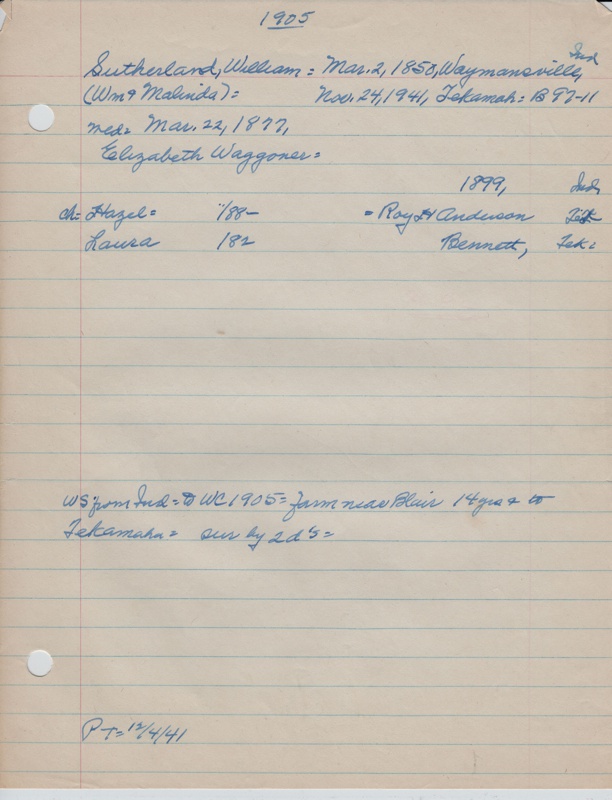 1905
Ind
Sutherland, William = Mar. 2, 1858, Waymansville,
(Wm & Malinda) = Nov. 24, 1941, Tekamah = B 97-11
med = Mar. 22, 1877,
Elizabeth Waggoner =
1899, Ind
ch = Hazel = 188- = Roy H Anderson Tek
Laura 182 Bennett, Tek =
WS from Ind = to WC 1905 = farm near Blair 14 yrs & to
Tekamaha = sur by 2 d's =
PT = 12/4/41